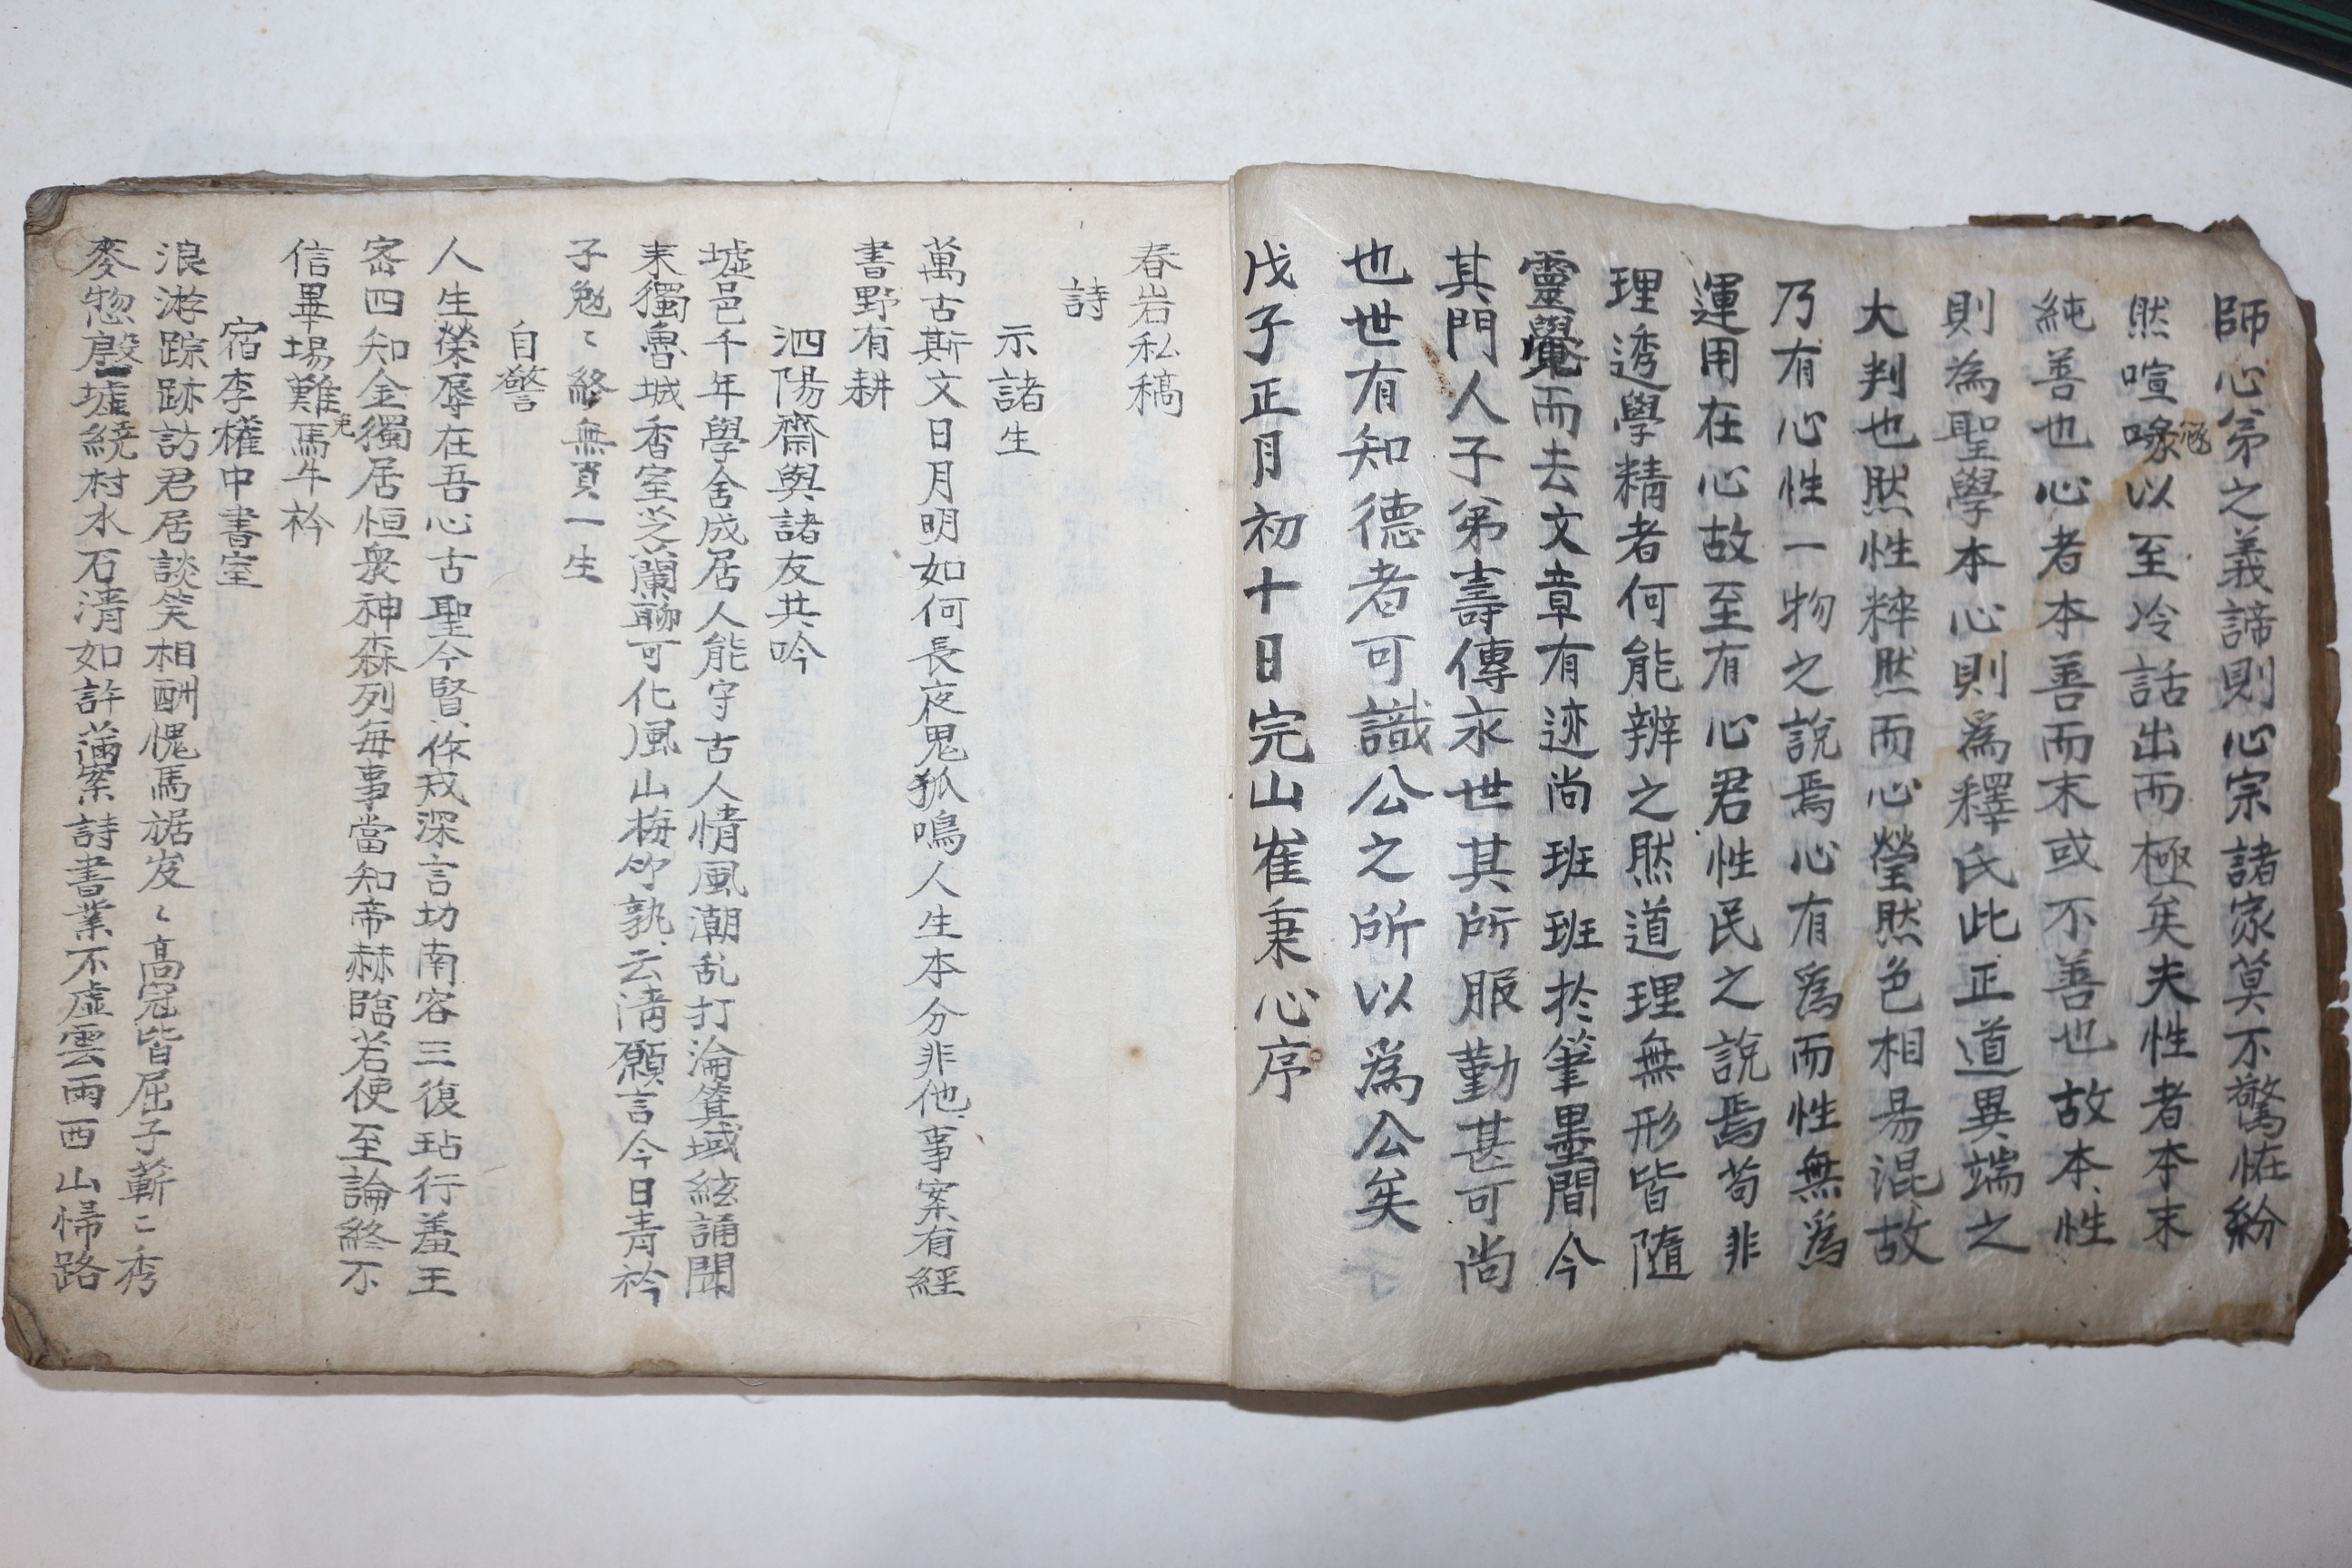 師心弟之義諦則心宗諸家莫不驚恠紛
然喧喙以至冷話出而極矣夫性者本末
純善也心者本善而末或不善也故本性
則為聖學本心則為釋氏此正道異端之
大判也然性粹然而心瑩然色相易混故
乃有心性一物之說焉心有爲而性無爲
運用在心故至有心君性民之說焉苟非
理透學精者何能辨之然道理無形皆隨
靈覺而去文章有迹尚班班於筆墨間今
其門人子弟壽傳永世其所服勤甚可尚
也世有知德者可識公之所以爲公矣
戊子正月初十日完山崔秉心序
春岩私稿
詩
示諸生
萬古斯文日月明如何長夜鬼狐鳴人生本分非他事案有經
書野有耕
泗陽齋與諸友共吟
墟邑千年學舍成居人能守古人情風潮乱打淪箕域絃誦聞
来獨魯城香室芝蘭聊可化風山梅竹孰云淸願言今日青衿
子勉〻終無負一生
自警
人生榮辱在吾心古聖今賢作戒深言切南容三復玷行羞王
密四知金獨居恒衆神森列每事當知帝赫臨若使至論終不
信畢場難免馬牛衿
宿李權中書室
浪游踪跡訪君居談笑相酬愧馬裾岌〻高冠皆屈子蘄〻秀
麥惣殷墟繞村水石清如許滿案詩書業不虛雲雨西山帰路